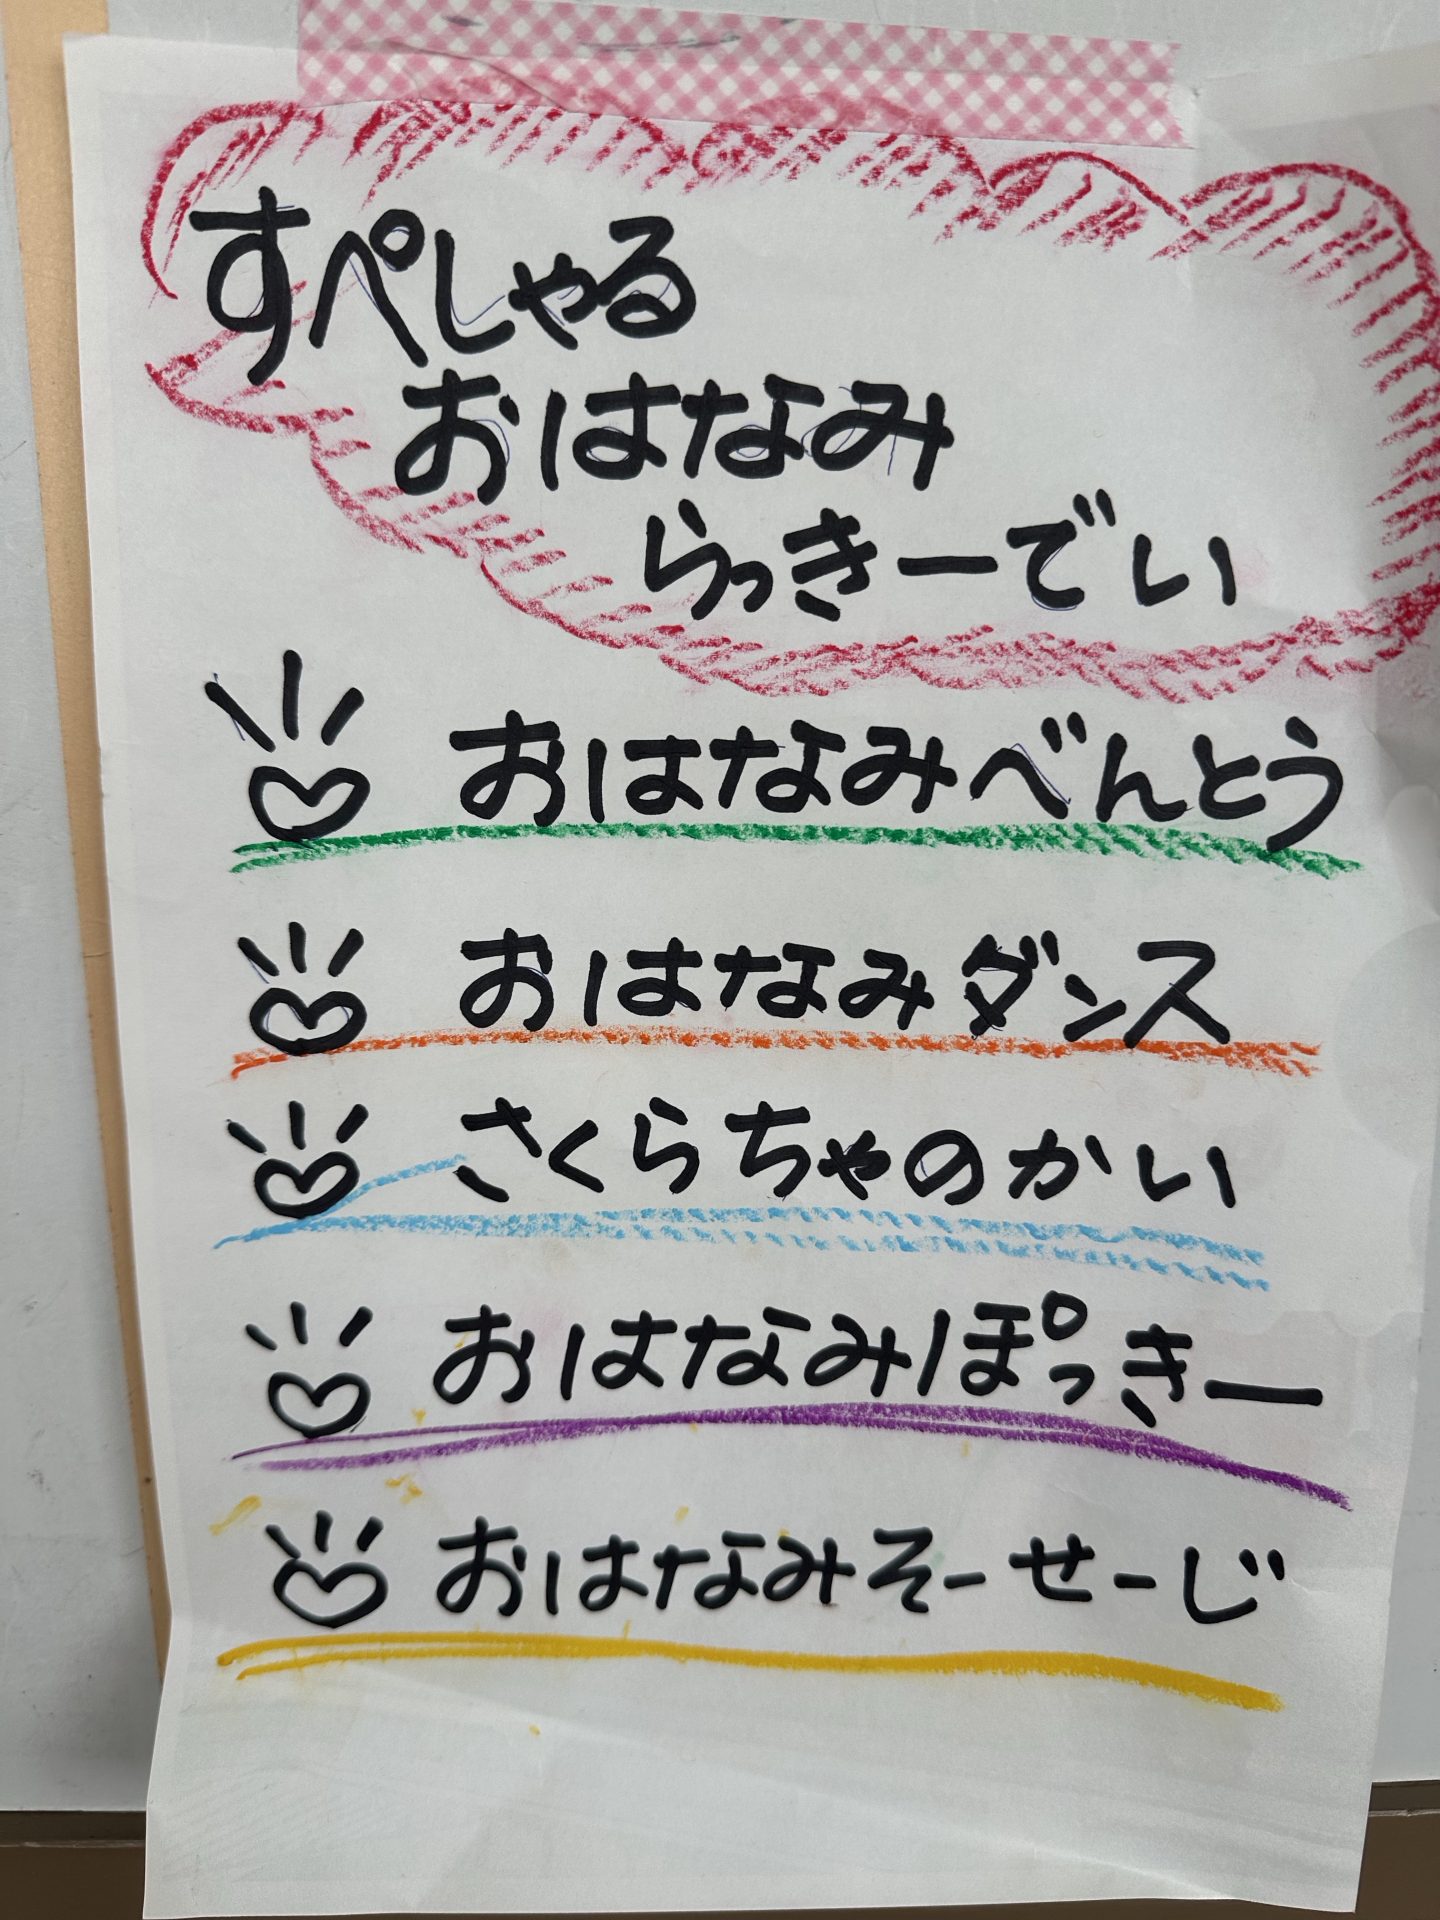 すぺしゃる
おはなみ
らっきーでい
おはなみべんとう
おはなみダンス
さくらちゃのかい
おはなみぽっきー
おはなみそーせーじ